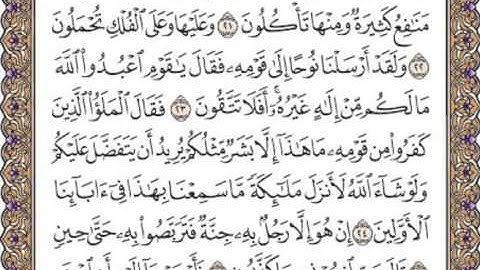 مَنَٰفِعُ كَثِيرَةٌ وَمِنْهَا تَأْكُلُونَ ٢١ وَعَلَيْهَا وَعَلَى ٱلْفُلْكِ تُحْمَلُونَ
٢٢ وَلَقَدْ أَرْسَلْنَا نُوحًا إِلَىٰ قَوْمِهِۦ فَقَالَ يَٰقَوْمِ ٱعْبُدُوا۟ ٱللَّهَ
مَا لَكُم مِّنْ إِلَٰهٍ غَيْرُهُۥٓ أَفَلَا تَتَّقُونَ ٢٣ فَقَالَ ٱلْمَلَؤُا۟ ٱلَّذِينَ
كَفَرُوا۟ مِن قَوْمِهِۦ مَا هَٰذَآ إِلَّا بَشَرٌ مِّثْلُكُمْ يُرِيدُ أَن يَتَفَضَّلَ عَلَيْكُمْ
وَلَوْ شَآءَ ٱللَّهُ لَأَنزَلَ مَلَٰٓئِكَةً مَّا سَمِعْنَا بِهَٰذَا فِىٓ ءَابَآئِنَا
ٱلْأَوَّلِينَ ٢٤ إِنْ هُوَ إِلَّا رَجُلٌۢ بِهِۦ جِنَّةٌ فَتَرَبَّصُوا۟ بِهِۦ حَتَّىٰ حِينٍ